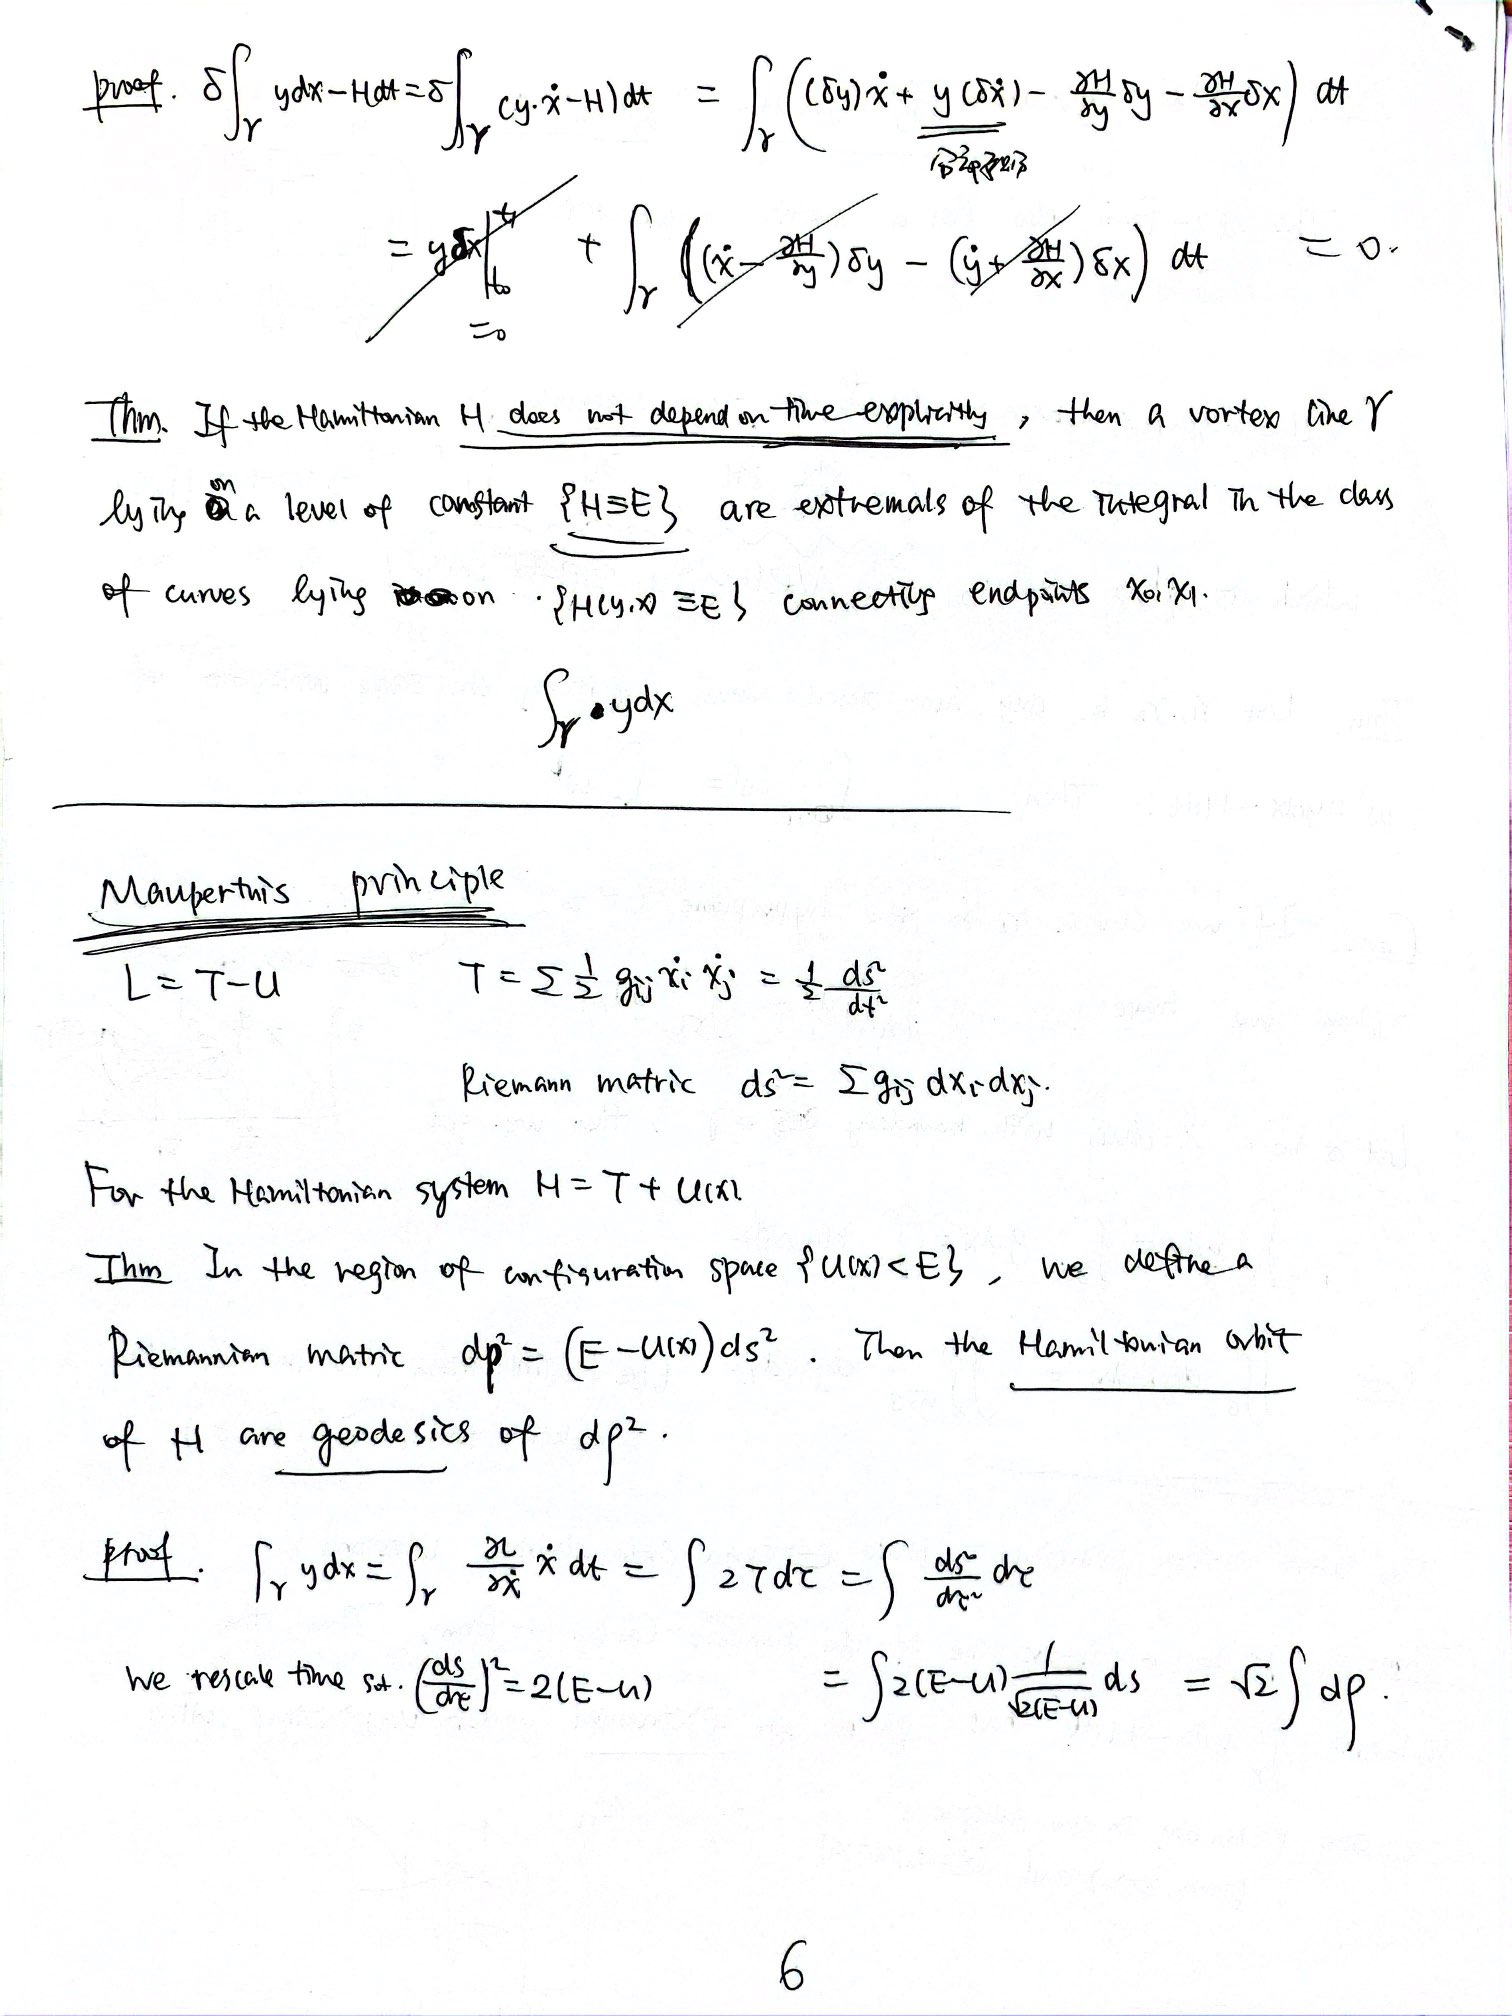 proof. δ∫_γ ydx−Hdt = δ∫_γ (y·ẋ−H)dt = ∫_γ ((δy)ẋ + y(δẋ) − ∂H/∂y δy − ∂H/∂x δx) dt
= yδx|_{t₀}^{t₁} + ∫_γ ((ẋ − ∂H/∂y)δy − (ẏ + ∂H/∂x)δx) dt = 0.
=0
Thm. If the Hamiltonian H does not depend on time explicitly, then a vortex line γ
lying on a level of constant {H≡E} are extremals of the integral in the class
of curves lying on {H(y,x)≡E} connecting endpoints x₀, x₁.
∫_γ ydx
Maupertuis principle
L = T−U T = Σ ½ g_ij ẋ_i ẋ_j = ½ ds²/dt²
Riemann matric ds² = Σ g_ij dx_i dx_j.
For the Hamiltonian system H = T + U(x)
Thm In the region of configuration space {U(x)<E}, we define a
Riemannian matric dρ² = (E−U(x))ds². Then the Hamiltonian orbit
of H are geodesics of dρ².
proof. ∫_γ ydx = ∫_γ ∂L/∂ẋ ẋ dt = ∫ 2T dτ = ∫ ds²/dτ² dτ
We rescale time s.t. (ds/dτ)² = 2(E−U) = ∫ 2(E−U) 1/√(2(E−U)) ds = √2 ∫ dρ.
6